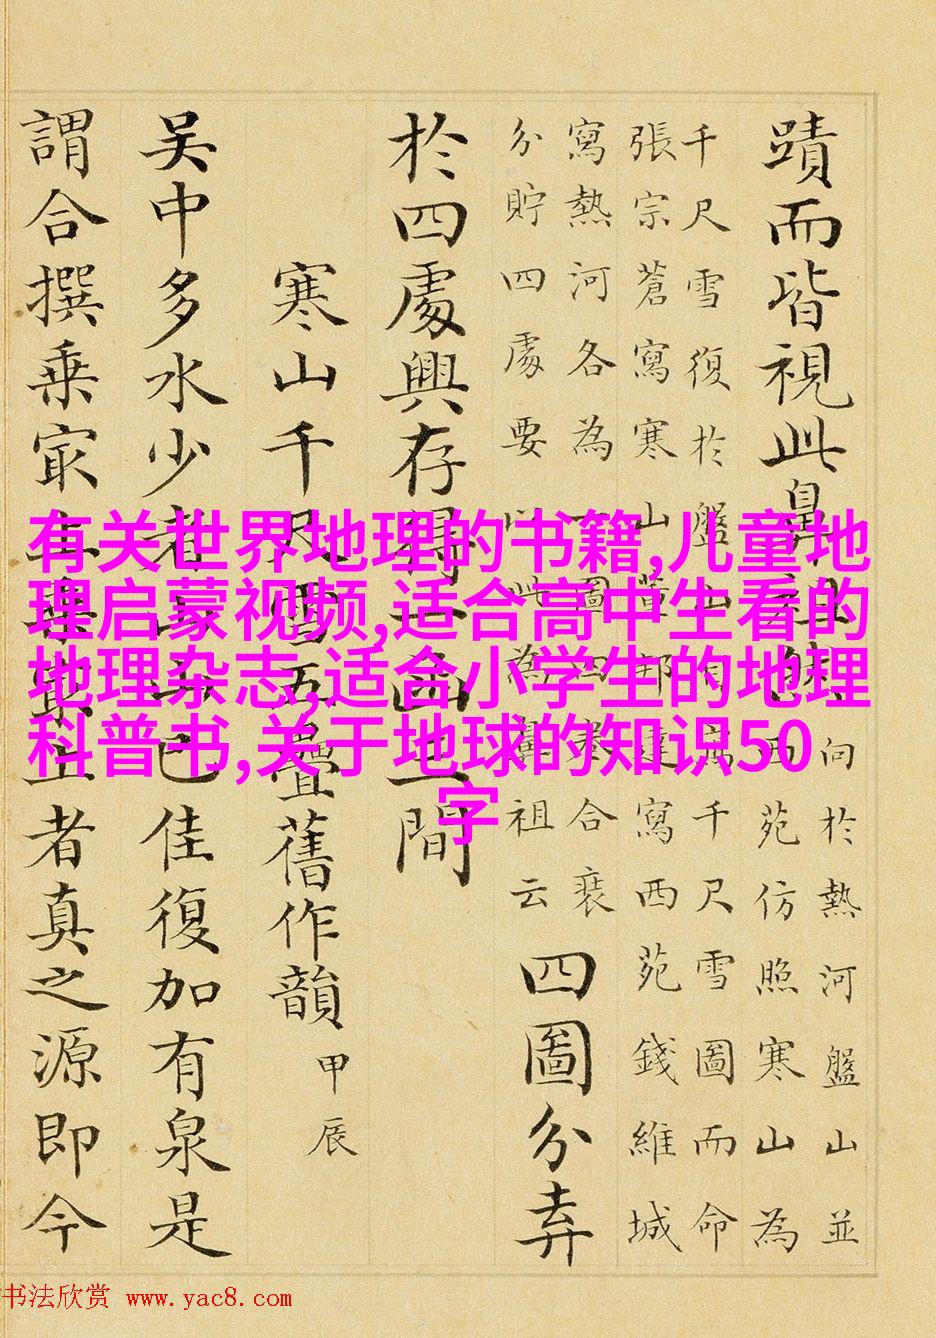 蹟而皆視此鼻
向於熱河盤山並
西苑仿照寒山為
千尺雪復於盤山 寫千尺雪圖而命
張宗蒼寫寒山董邦達寫西苑錢維城
寫熱河各為一圖四卷合裝
分貯四處要以此為 祖云
四圖分弆
於四處興存 間
寒山千尺雪五疊舊作韻 甲辰
吳中多水少者 已佳復加有泉是
謂合撰乘㝡上乘㝡上者真之源即今
有关世界地理的书籍,儿童地
理启蒙视频,适合高中生看的
地理杂志,适合小学生的地理
科普书,关于地球的知识50
字
书法欣赏 www.yac8.com